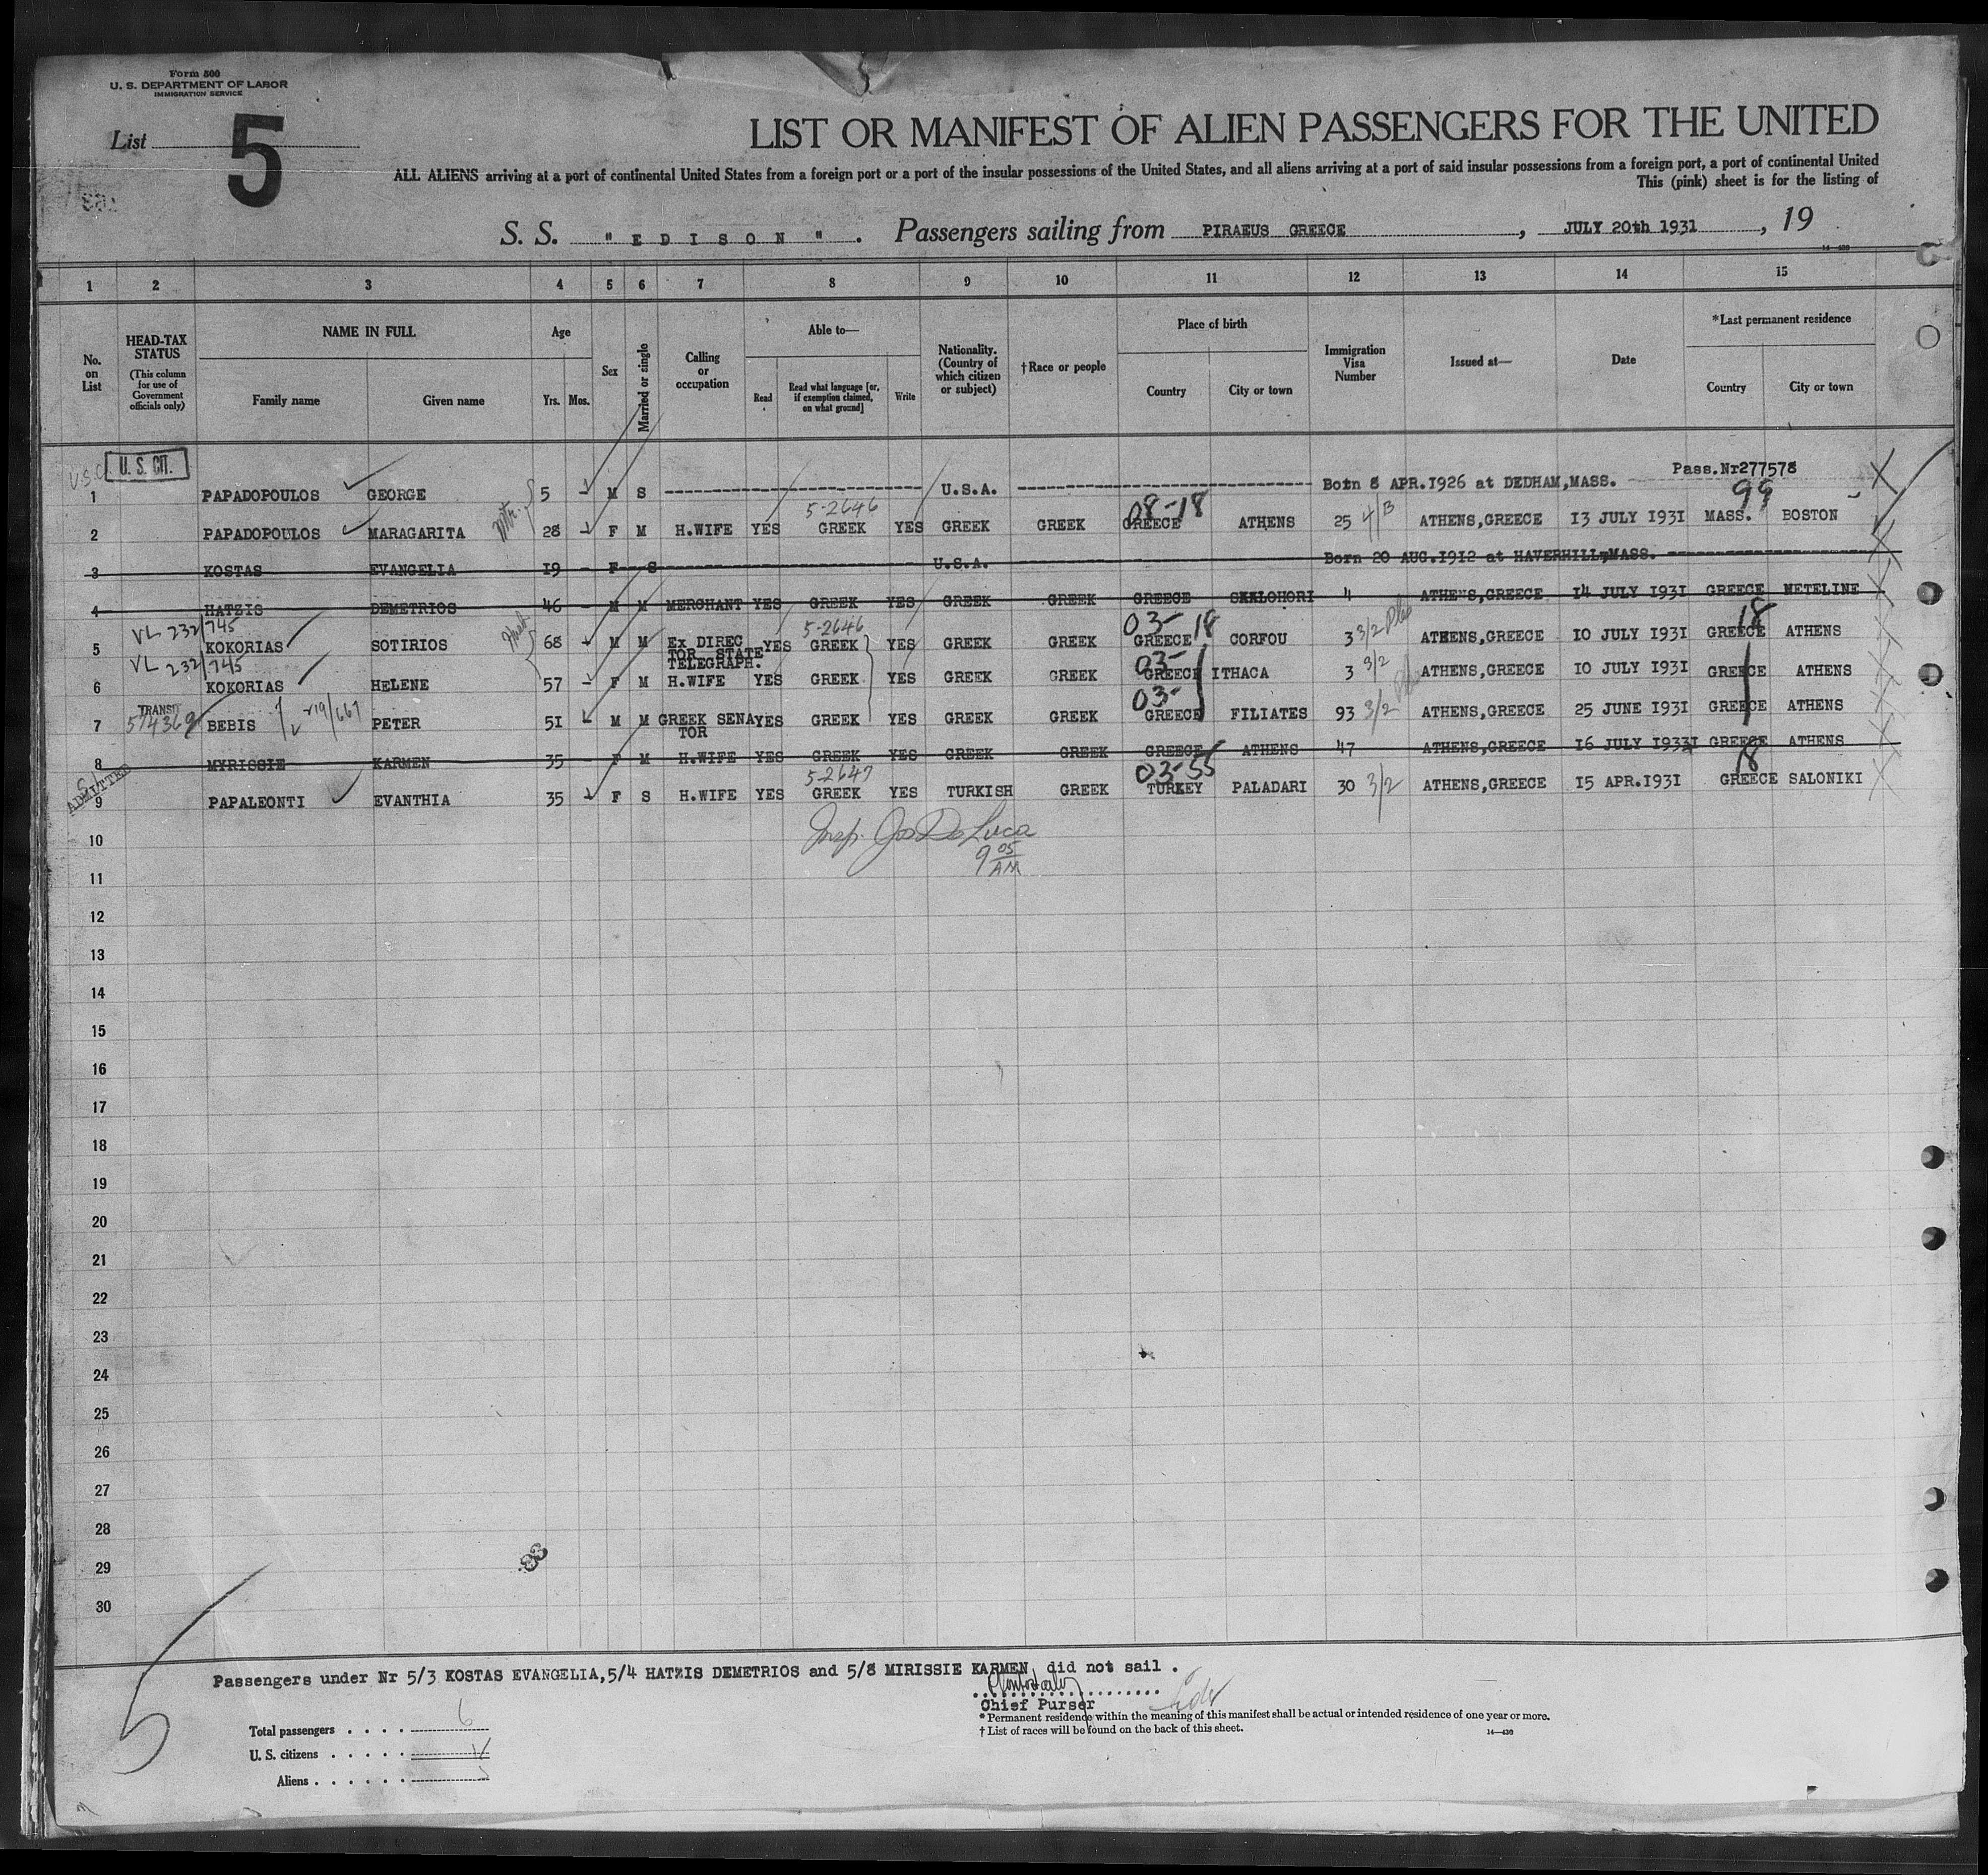 Form 500
U. S. DEPARTMENT OF LABOR
IMMIGRATION SERVICE
List 5
LIST OR MANIFEST OF ALIEN PASSENGERS FOR THE UNITED
ALL ALIENS arriving at a port of continental United States from a foreign port or a port of the insular possessions of the United States, and all aliens arriving at a port of said insular possessions from a foreign port, a port of continental United
This (pink) sheet is for the listing of
S. S. "EDISON". Passengers sailing from PIRAEUS GREECE, JULY 20th 1931, 19
14—430
1 2 3 4 5 6 7 8 9 10 11 12 13 14 15
No. on List
HEAD-TAX STATUS
(This column for use of Government officials only)
NAME IN FULL
Family name Given name
Age
Yrs. Mos.
Sex
Married or single
Calling or occupation
Able to—
Read Read what language [or, if exemption claimed, on what ground] Write
Nationality. (Country of which citizen or subject)
†Race or people
Place of birth
Country City or town
Immigration Visa Number
Issued at—
Date
*Last permanent residence
Country City or town
U.S.C. U. S. CIT. Pass.Nr277578
1 PAPADOPOULOS GEORGE 5 M S U.S.A. Born 8 APR.1926 at DEDHAM,MASS. 99
5-2646 08-18
2 PAPADOPOULOS MARAGARITA 28 F M H.WIFE YES GREEK YES GREEK GREEK GREECE ATHENS 25 4/B ATHENS,GREECE 13 JULY 1931 MASS. BOSTON
3 KOSTAS EVANGELIA 19 - F S U.S.A. Born 20 AUG.1912 at HAVERHILL,MASS.
4 HATZIS DEMETRIOS 46 - M M MERCHANT YES GREEK YES GREEK GREEK GREECE SKALOHORI 4 ATHENS,GREECE 14 JULY 1931 GREECE METELINE
VL 232/745 5-2646 03-18 18
5 KOKORIAS SOTIRIOS 68 M M Ex DIREC YES GREEK YES GREEK GREEK GREECE CORFOU 3 3/2 ATHENS,GREECE 10 JULY 1931 GREECE ATHENS
TOR STATE
TELEGRAPH.
VL 232/745 03-
6 KOKORIAS HELENE 57 - F M H.WIFE YES GREEK YES GREEK GREEK GREECE ITHACA 3 3/2 ATHENS,GREECE 10 JULY 1931 GREECE ATHENS
TRANSIT 03-
7 BEBIS 219/667 PETER 51 M M GREEK SENA YES GREEK YES GREEK GREEK GREECE FILIATES 93 3/2 ATHENS,GREECE 25 JUNE 1931 GREECE ATHENS
TOR
8 MYRISSIE KARMEN 35 - F M H.WIFE YES GREEK YES GREEK GREEK GREECE ATHENS 47 ATHENS,GREECE 16 JULY 1931 GREECE ATHENS
ADMITTED 5-2647 03-55 18
9 PAPALEONTI EVANTHIA 35 F S H.WIFE YES GREEK YES TURKISH GREEK TURKEY PALADARI 30 3/2 ATHENS,GREECE 15 APR.1931 GREECE SALONIKI
10 Insp. Jos De Luca
9 05 AM
11
12
13
14
15
16
17
18
19
20
21
22
23
24
25
26
27
28
29
30
Passengers under Nr 5/3 KOSTAS EVANGELIA,5/4 HATZIS DEMETRIOS and 5/8 MIRISSIE KARMEN did not sail .
Chief Purser
* Permanent residence within the meaning of this manifest shall be actual or intended residence of one year or more.
† List of races will be found on the back of this sheet.
14—430
5
Total passengers . . . . 6
U. S. citizens . . . . .
Aliens . . . . . . 5